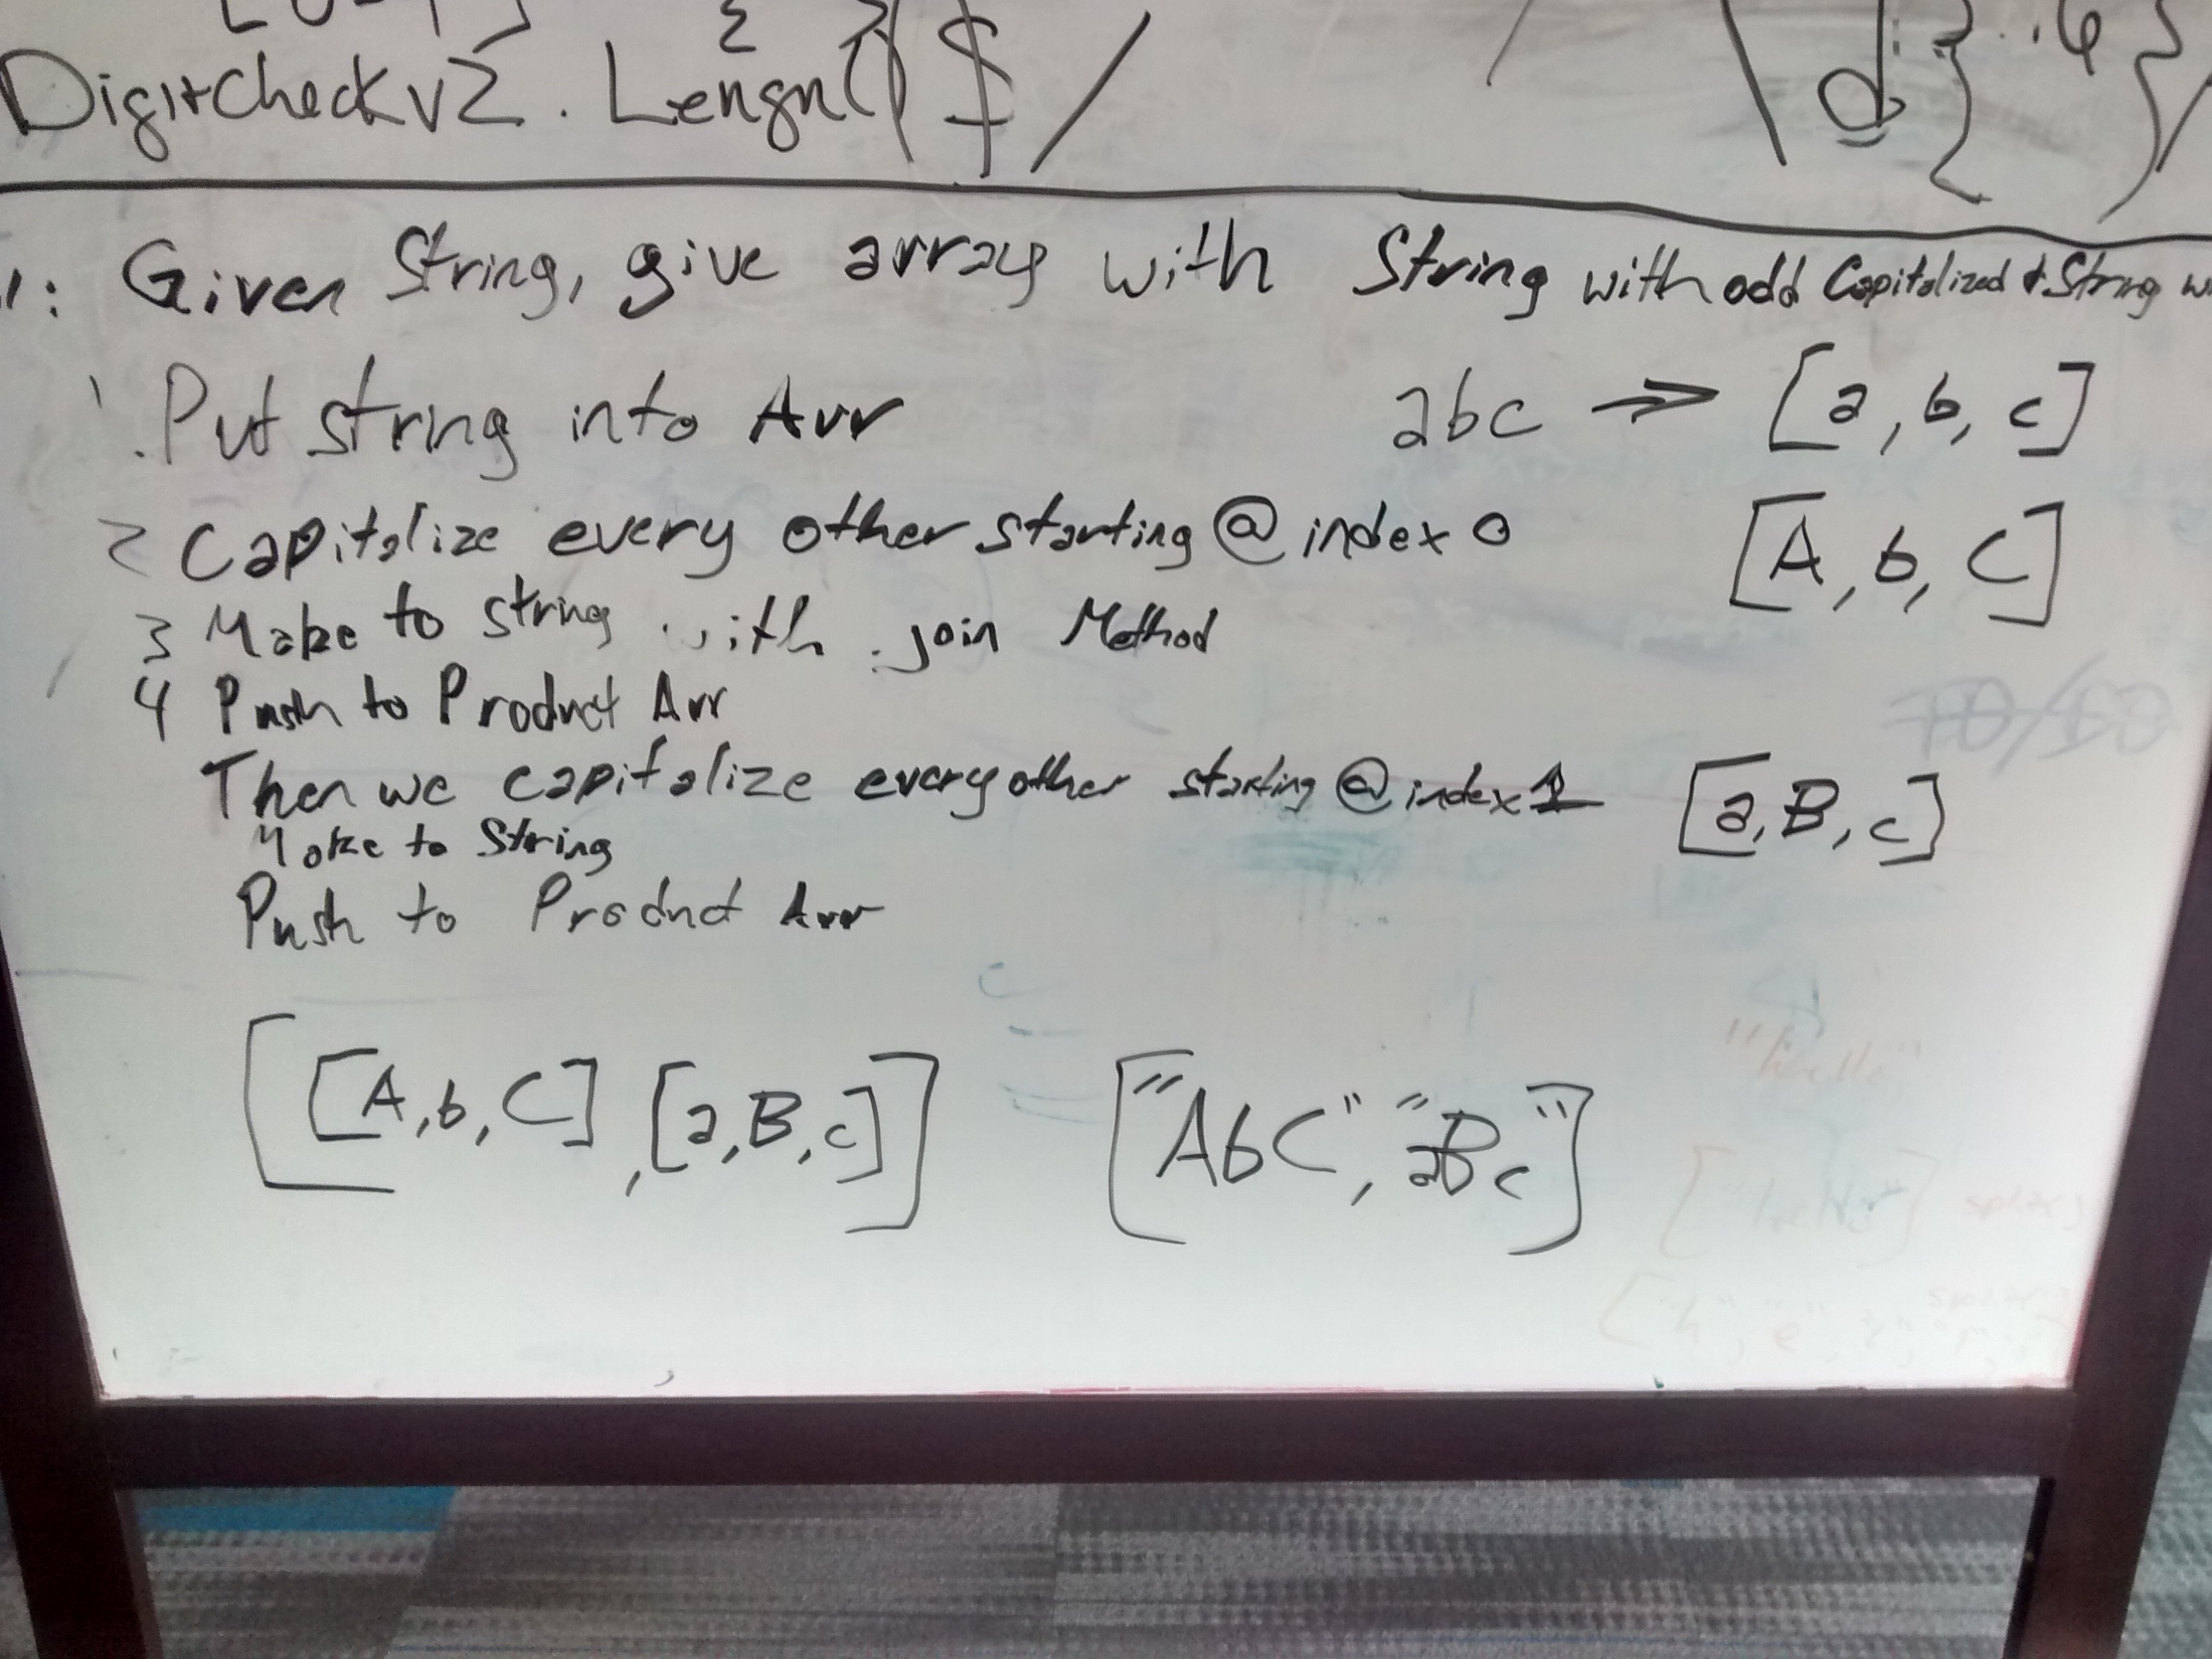 DigitCheckv2.Lengn() $/ \d{.6}/
1: Given String, give array with String with odd Capitalized & String w
1. Put string into Arr abc => [a, b, c]
2 Capitalize every other starting @ index 0 [A, b, C]
3 Make to string with .join Method
4 Push to Product Arr
Then we capitalize every other starting @ index 1 [a, B, c]
Make to String
Push to Product Arr
[[A, b, C], [a, B, c]] ["AbC", "aBc"]